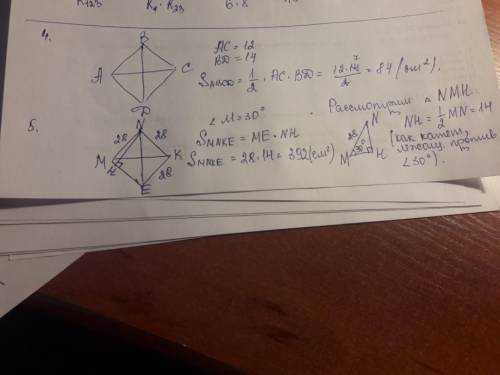 K₁₂₃ K₁ · K₂₃ 6 · 8
4.
B
A
C
D
AC = 12
BD = 14
S_ABCD = 1/2 · AC · BD = 12·14/2 = 84 (см²).
7
∠M = 30°
5.
N
28 28
M
K
H
28
E
S_MNKE = ME · NH
S_MNKE = 28·14 = 392 (см²)
Рассмотрим △ NMH.
N
28
M 30° H
NH = 1/2 MN = 14
(как катет,
лежащ. против
∠30°).